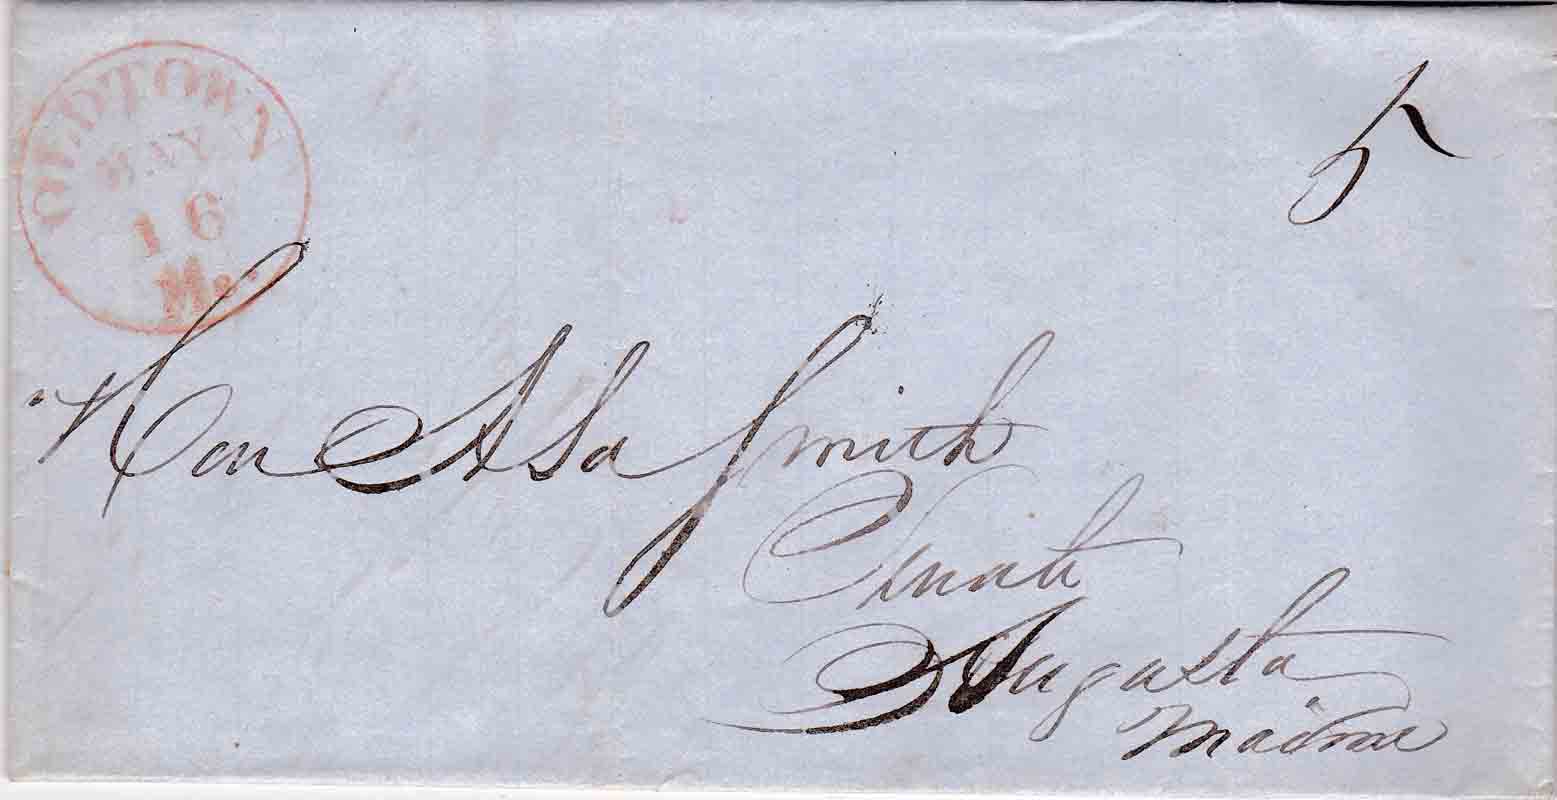 OLDTOWN
MAY
16
Me.
5
Hon Asa Smith
Senate
Augusta
Maine